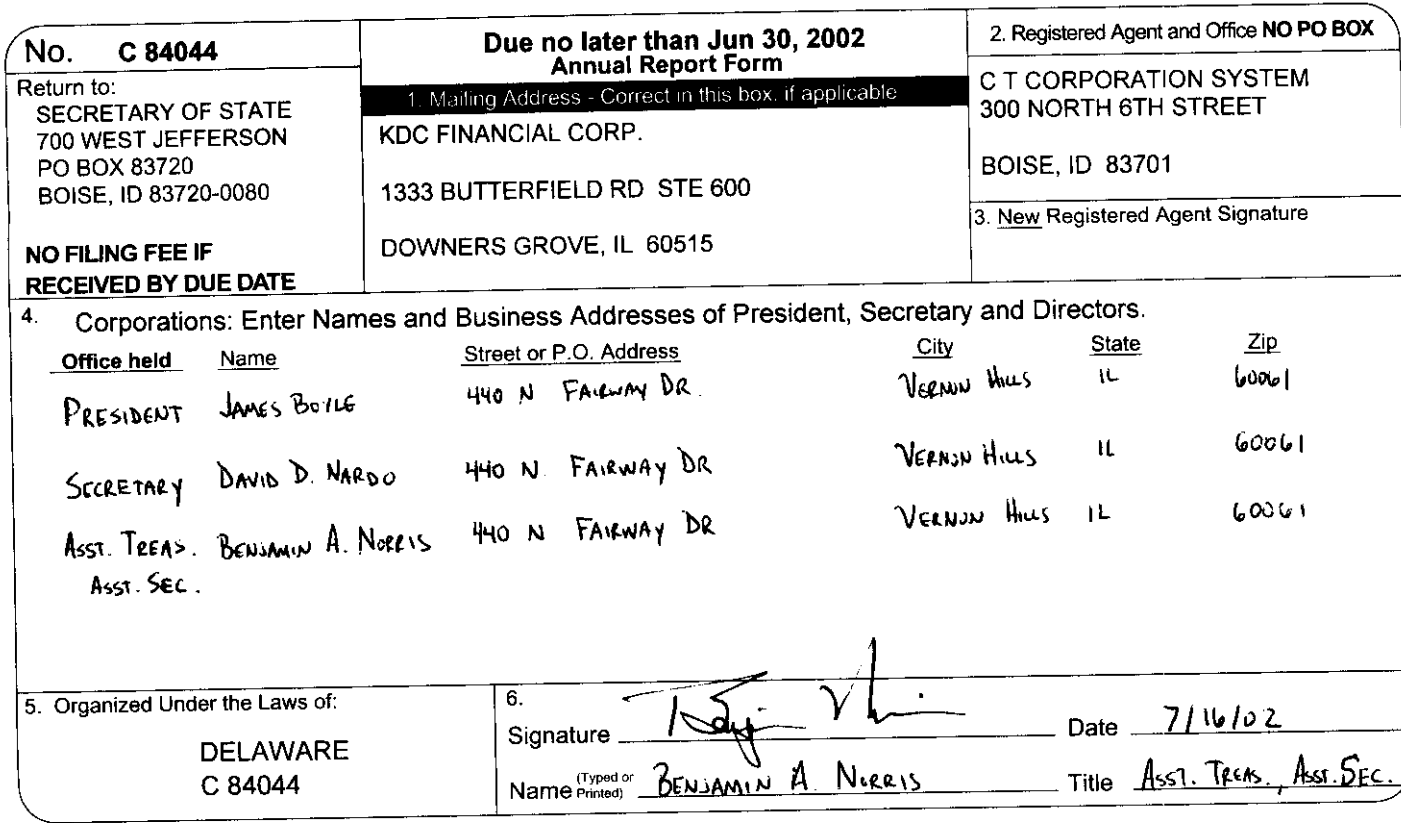 No. C 84044
Return to:
SECRETARY OF STATE
700 WEST JEFFERSON
PO BOX 83720
BOISE, ID 83720-0080
NO FILING FEE IF
RECEIVED BY DUE DATE
Due no later than Jun 30, 2002
Annual Report Form
1. Mailing Address - Correct in this box, if applicable
KDC FINANCIAL CORP.
1333 BUTTERFIELD RD STE 600
DOWNERS GROVE, IL 60515
2. Registered Agent and Office NO PO BOX
C T CORPORATION SYSTEM
300 NORTH 6TH STREET
BOISE, ID 83701
3. New Registered Agent Signature
4. Corporations: Enter Names and Business Addresses of President, Secretary and Directors.
Office held Name Street or P.O. Address City State Zip
PRESIDENT JAMES BOYLE 440 N FAIRWAY DR. VERNON HILLS IL 60061
SECRETARY DAVID D. NARDO 440 N. FAIRWAY DR VERNON HILLS IL 60061
ASST. TREAS. BENJAMIN A. NORRIS 440 N FAIRWAY DR VERNON HILLS IL 60061
ASST. SEC.
5. Organized Under the Laws of:
DELAWARE
C 84044
6.
Signature Date 7/16/02
Name (Typed or Printed) BENJAMIN A. NORRIS Title ASST. TREAS., ASST. SEC.